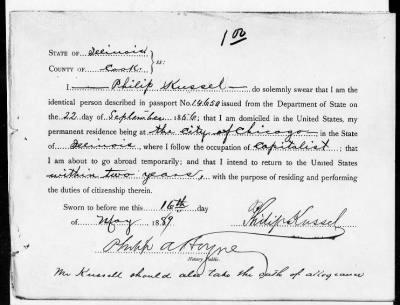 1 00
STATE OF Illinois
COUNTY OF Cook. } ss:
I Philip Kussel do solemnly swear that I am the
identical person described in passport No. 14650 issued from the Department of State on
the 22 day of September 1856; that I am domiciled in the United States, my
permanent residence being at the city of Chicago in the State
of Illinois, where I follow the occupation of capitalist; that
I am about to go abroad temporarily; and that I intend to return to the United States
within two years, with the purpose of residing and performing
the duties of citizenship therein.
Sworn to before me this 16th day
of May 1889.
Philip Kussel
Philip A Hoyne
Notary Public.
Mr Kussell should also take the oath of allegiance